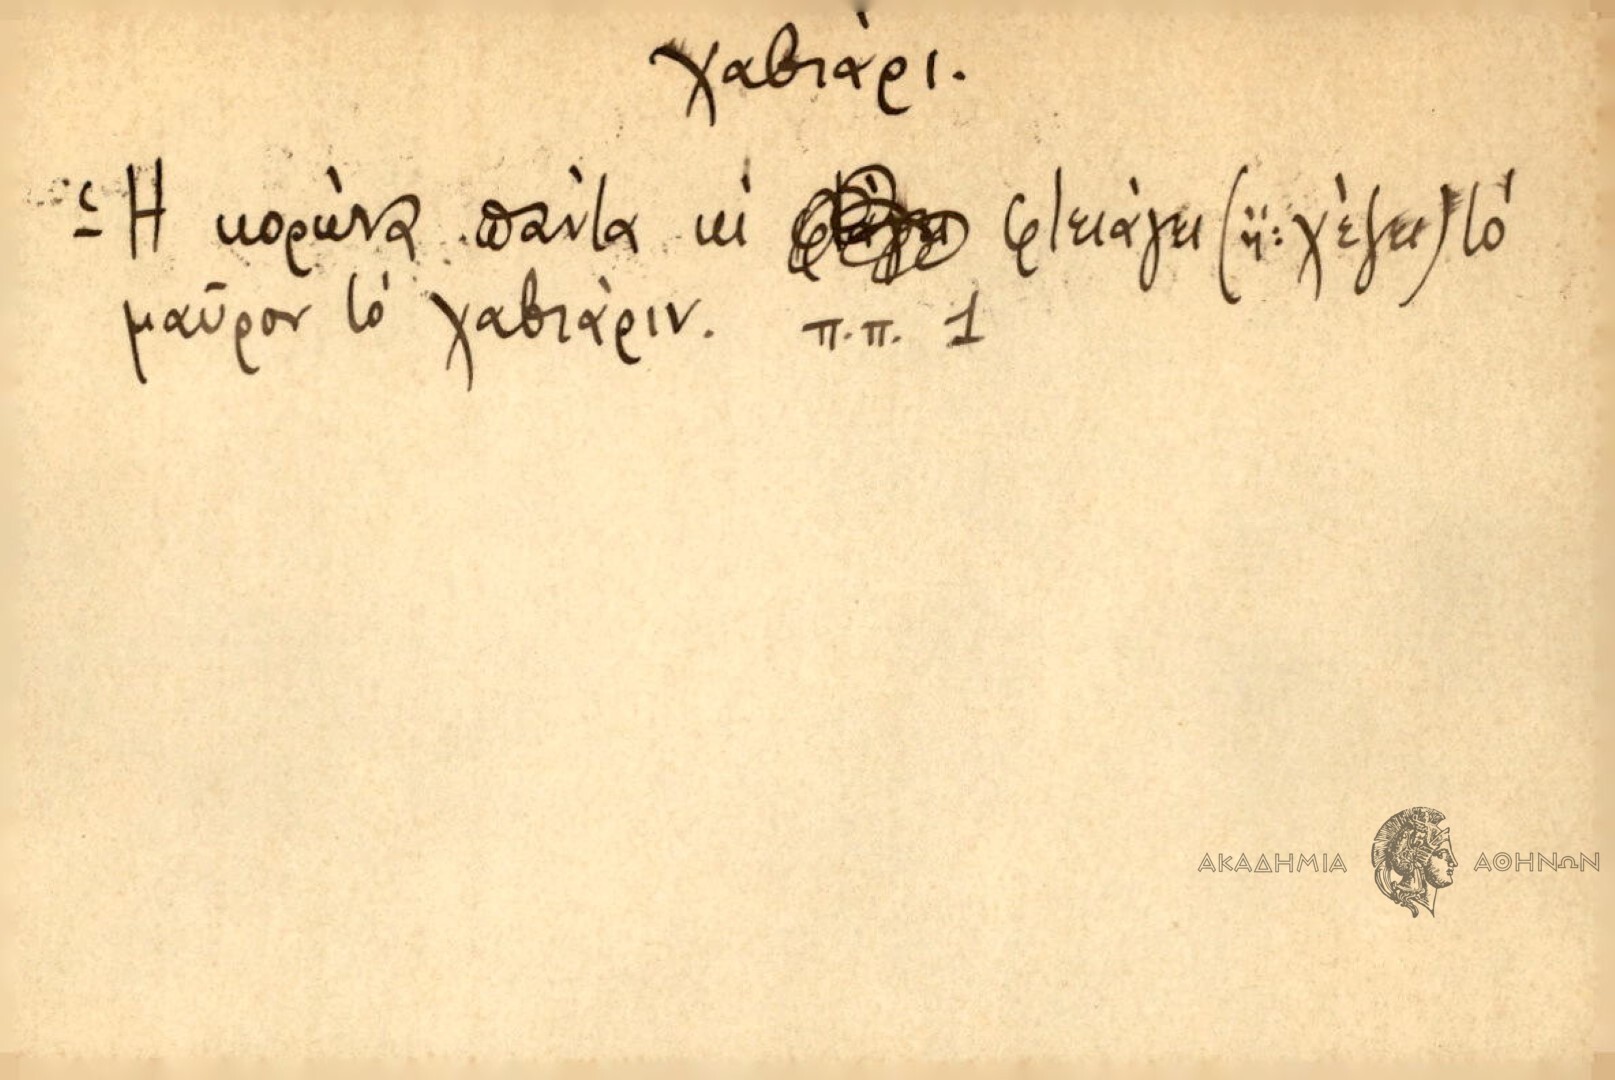 χαβιάρι.
- Ἡ κορώνα πάντα κι φτειάγει (ἤ: χέζει) τό
μαῦρον τό χαβιάριν. π.π. 1
ΑΚΑΔΗΜΙΑ ΑΘΗΝΩΝ